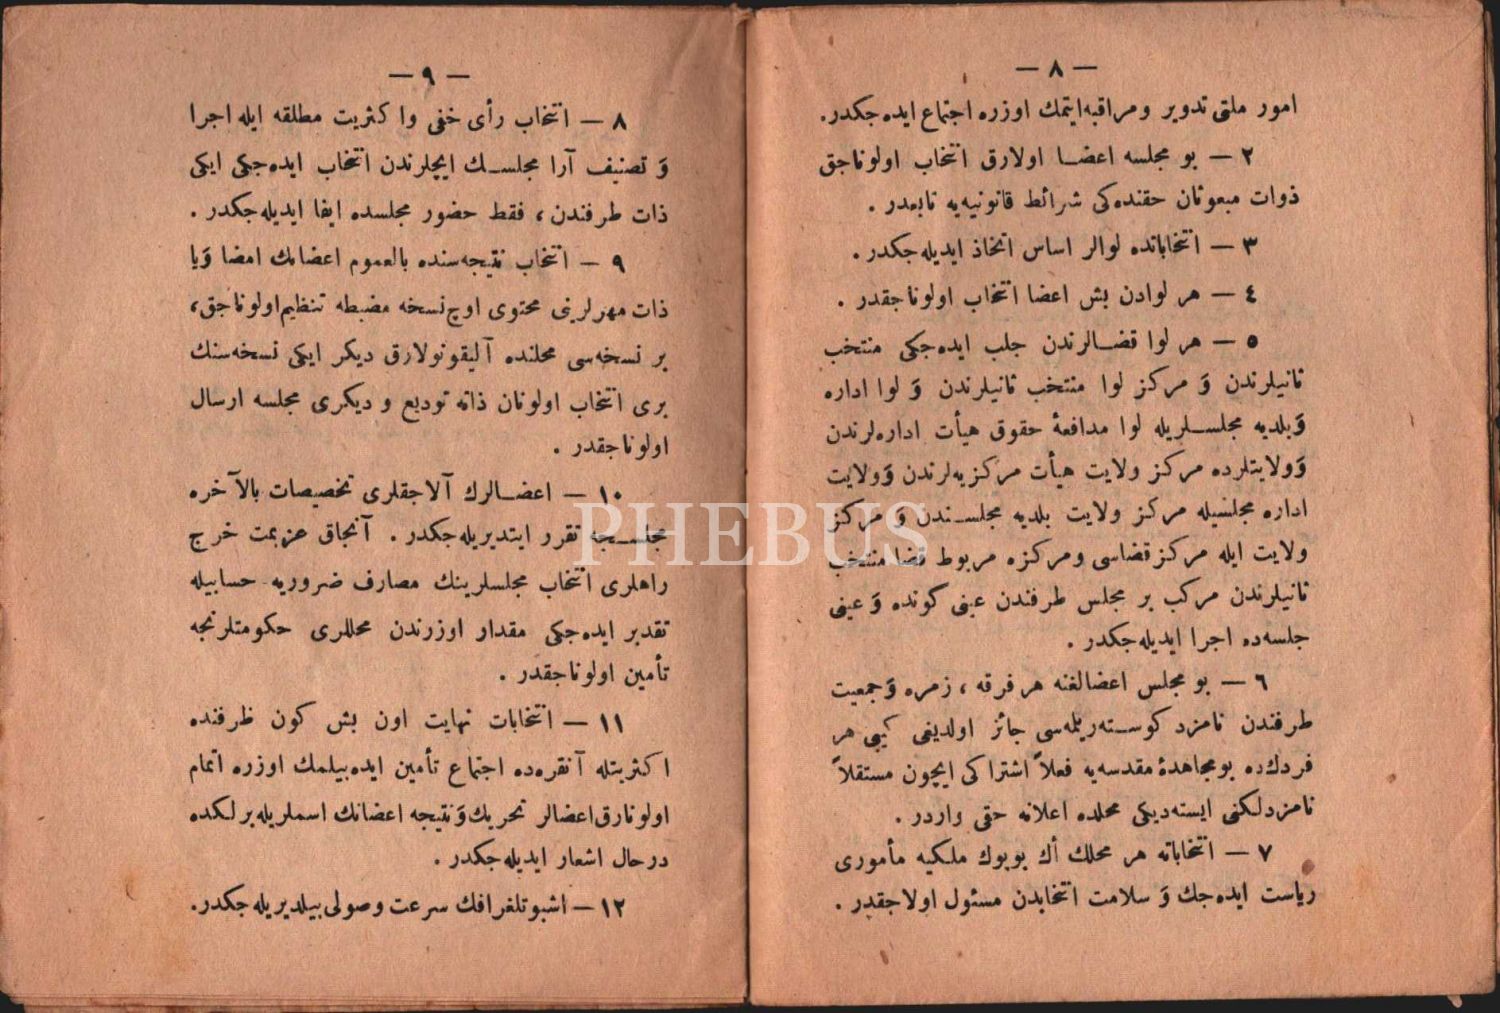 — ٨ —
امور ملتى تدوير ومراقبه‌ايتمك اوزره اجتماع ايده‌جكدر.
٢ — بو مجلسه اعضا اولارق انتخاب اولوناجق
ذوات مبعوثان حقنده‌كى شرائط قانونيه‌يه تابعدر .
٣ — انتخاباتده لوالر اساس اتخاذ ايديله‌جكدر .
٤ — هر لوادن بش اعضا انتخاب اولوناجقدر .
٥ — هر لوا قضالرندن جلب ايده‌جكى منتخب
ثانيلرندن وَ مركز لوا منتخب ثانيلرندن وَ لوا اداره
وَبلديه مجلسلريله لوا مدافعۀ حقوق هيأت اداره‌لرندن
وَولايتلرده مركز ولايت هيأت مركزيه‌لرندن وَولايت
اداره مجلسيله مركز ولايت بلديه مجلسندن وَ مركز
ولايت ايله مركز قضاسى ومركزه مربوط قضا منتخب
ثانيلرندن مركب بر مجلس طرفندن عينى كونده وَ عينى
جلسه‌ده اجرا ايديله‌جكدر .
٦ — بو مجلس اعضالغنه هر فرقه ، زمره وَ جمعيت
طرفندن نامزد كوسته‌ريله‌سى جائز اولديغى كبى هر
فردك‌ده بومجاهدۀ مقدسه‌يه فعلاً اشتراكى ايچون مستقلاً
نامزدلكنى ايسته‌ديكى محلده اعلانه حقى واردر .
٧ — انتخاباته هر محلك أك بويوك ملكيه مأمورى
رياست ايده‌جك وَ سلامت انتخابدن مسئول اولاجقدر .
— ٩ —
٨ — انتخاب رأى خفى وا كثريت مطلقه ايله اجرا
وَ تصنيف آرا مجلسك ايچلرندن انتخاب ايده‌جكى ايكى
ذات طرفندن ، فقط حضور مجلسده ايفا ايديله‌جكدر .
٩ — انتخاب نتيجه‌سنده بالعموم اعضانك امضا وَيا
ذات مهرلرينى محتوى اوچ نسخه مضبطه تنظيم اولوناجق،
بر نسخه‌سى محلنده آليقونولارق ديكر ايكى نسخه‌سنك
برى انتخاب اولونان ذاته توديع و ديكرى مجلسه ارسال
اولوناجقدر .
١٠ — اعضالرك آلاجقلرى تخصيصات بالآخره
مجلسجه تقرر ايتديريله‌جكدر . آنجاق عزيمت خرج
راهلرى انتخاب مجلسلرينك مصارف ضروريه حسابيله
تقدير ايده‌جكى مقدار اوزرندن محللرى حكومتلرنجه
تأمين اولوناجقدر .
١١ — انتخابات نهايت اون بش كون ظرفنده
اكثريتله آنقره‌ده اجتماع تأمين ايده‌بيلمك اوزره اتمام
اولونارق اعضالر تحريك وَنتيجه اعضانك اسملريله برلكده
درحال اشعار ايديله‌جكدر .
١٢ — اشبو تلغرافك سرعت وصولى بيلديريله‌جكدر.
PHEBUS